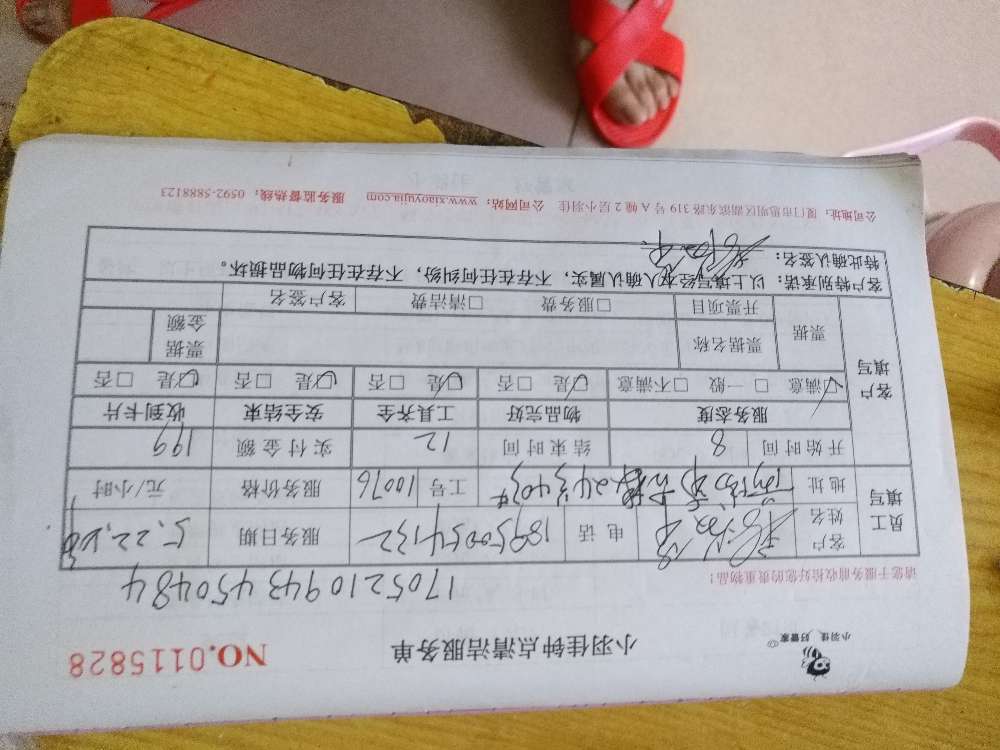 小羽佳 好管家
小羽佳钟点清洁服务单
NO.0115828
请您于服务前收检好您的贵重物品！
1705210943450484
员工填写
客户姓名 电话 18950054132 服务日期 5.22
地址 24#403# 工号 10076 服务价格 元/小时
开始时间 8 结束时间 12 实付金额 199
客户填写
服务态度 物品完好 工具齐全 安全结束 收到卡片
☑满意 □一般 □不满意 ☑是 □否 ☑是 □否 ☑是 □否 ☑是 □否
票据 票据名称 票据金额
开票项目 □服务费 □清洁费 客户签名
客户特别承诺：以上填写经本人确认属实，不存在任何纠纷，不存在任何物品损坏。
特此确认签名：
公司地址：厦门市思明区湖滨东路 319 号 A 幢 2 层小羽佳 公司网站：www.xiaoyujia.com 服务监督热线：0592-5888123